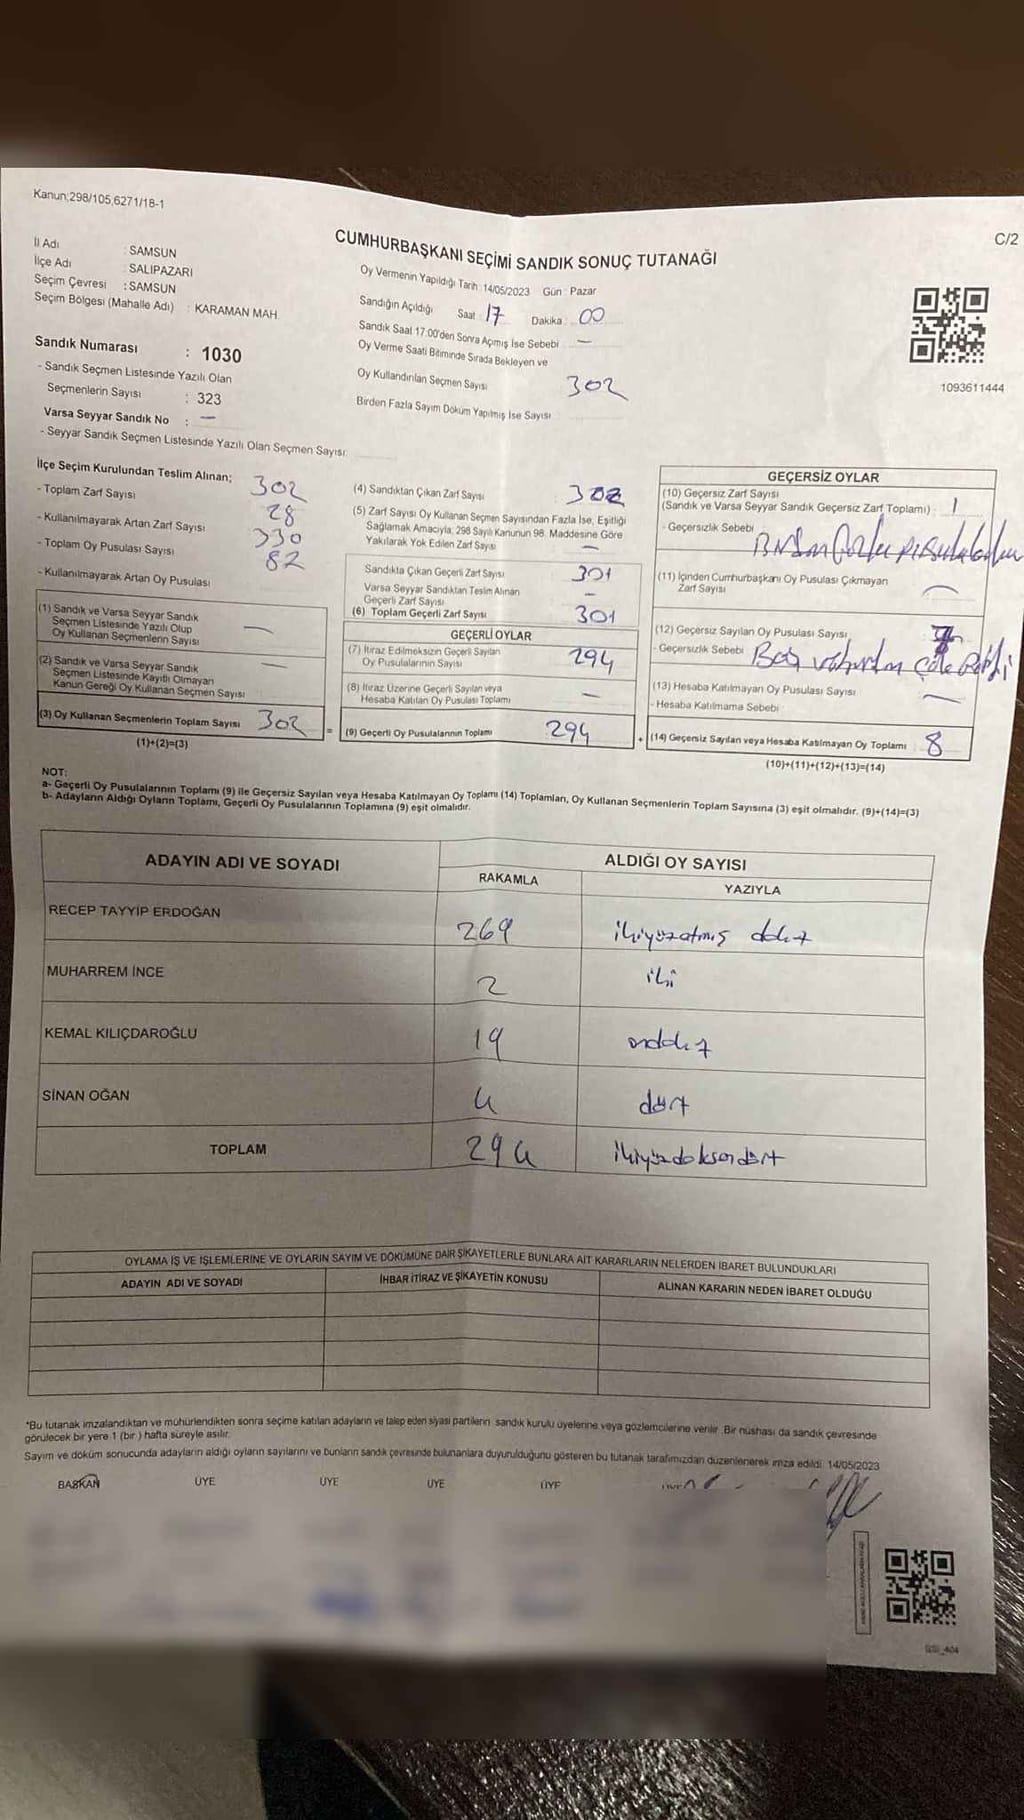 Kanun;298/105,6271/18-1
C/2
CUMHURBAŞKANI SEÇİMİ SANDIK SONUÇ TUTANAĞI
İl Adı : SAMSUN
İlçe Adı : SALIPAZARI
Seçim Çevresi : SAMSUN
Seçim Bölgesi (Mahalle Adı) : KARAMAN MAH.
Sandık Numarası : 1030
- Sandık Seçmen Listesinde Yazılı Olan
Seçmenlerin Sayısı : 323
Varsa Seyyar Sandık No : —
- Seyyar Sandık Seçmen Listesinde Yazılı Olan Seçmen Sayısı:
Oy Vermenin Yapıldığı Tarih: 14/05/2023 Gün : Pazar
Sandığın Açıldığı Saat : 17 Dakika : 00
Sandık Saat 17:00'den Sonra Açmış İse Sebebi : —
Oy Verme Saati Bitiminde Sırada Bekleyen ve
Oy Kullandırılan Seçmen Sayısı 302
Birden Fazla Sayım Döküm Yapılmış İse Sayısı
1093611444
İlçe Seçim Kurulundan Teslim Alınan;
- Toplam Zarf Sayısı 302
- Kullanılmayarak Artan Zarf Sayısı 28
- Toplam Oy Pusulası Sayısı 330
- Kullanılmayarak Artan Oy Pusulası 82
(1) Sandık ve Varsa Seyyar Sandık
Seçmen Listesinde Yazılı Olup
Oy Kullanan Seçmenlerin Sayısı —
(2) Sandık ve Varsa Seyyar Sandık
Seçmen Listesinde Kayıtlı Olmayan
Kanun Gereği Oy Kullanan Seçmen Sayısı —
(3) Oy Kullanan Seçmenlerin Toplam Sayısı 302 =
(1)+(2)=(3)
(4) Sandıktan Çıkan Zarf Sayısı 302
(5) Zarf Sayısı Oy Kullanan Seçmen Sayısından Fazla İse, Eşitliği
Sağlamak Amacıyla; 298 Sayılı Kanunun 98. Maddesine Göre
Yakılarak Yok Edilen Zarf Sayısı —
Sandıkta Çıkan Geçerli Zarf Sayısı 301
Varsa Seyyar Sandıktan Teslim Alınan
Geçerli Zarf Sayısı —
(6) Toplam Geçerli Zarf Sayısı 301
GEÇERLİ OYLAR
(7) İtiraz Edilmeksizin Geçerli Sayılan
Oy Pusulalarının Sayısı 294
(8) İtiraz Üzerine Geçerli Sayılan veya
Hesaba Katılan Oy Pusulası Toplamı —
(9) Geçerli Oy Pusulalarının Toplamı 294 +
GEÇERSİZ OYLAR
(10) Geçersiz Zarf Sayısı
(Sandık ve Varsa Seyyar Sandık Geçersiz Zarf Toplamı) : 1
- Geçersizlik Sebebi
(11) İçinden Cumhurbaşkanı Oy Pusulası Çıkmayan
Zarf Sayısı —
(12) Geçersiz Sayılan Oy Pusulası Sayısı 7
- Geçersizlik Sebebi
(13) Hesaba Katılmayan Oy Pusulası Sayısı —
- Hesaba Katılmama Sebebi :
(14) Geçersiz Sayılan veya Hesaba Katılmayan Oy Toplamı 8
(10)+(11)+(12)+(13)=(14)
NOT:
a- Geçerli Oy Pusulalarının Toplamı (9) ile Geçersiz Sayılan veya Hesaba Katılmayan Oy Toplamı (14) Toplamları, Oy Kullanan Seçmenlerin Toplam Sayısına (3) eşit olmalıdır. (9)+(14)=(3)
b- Adayların Aldığı Oyların Toplamı, Geçerli Oy Pusulalarının Toplamına (9) eşit olmalıdır.
ADAYIN ADI VE SOYADI ALDIĞI OY SAYISI
RAKAMLA YAZIYLA
RECEP TAYYİP ERDOĞAN 269 ikiyüzatmış dokuz
MUHARREM İNCE 2 iki
KEMAL KILIÇDAROĞLU 19 ondokuz
SİNAN OĞAN 4 dört
TOPLAM 294 ikiyüzdoksandört
OYLAMA İŞ VE İŞLEMLERİNE VE OYLARIN SAYIM VE DÖKÜMÜNE DAİR ŞİKAYETLERLE BUNLARA AİT KARARLARIN NELERDEN İBARET BULUNDUKLARI
ADAYIN ADI VE SOYADI İHBAR İTİRAZ VE ŞİKAYETİN KONUSU ALINAN KARARIN NEDEN İBARET OLDUĞU
*Bu tutanak imzalandıktan ve mühürlendikten sonra seçime katılan adayların ve talep eden siyasi partilerin sandık kurulu üyelerine veya gözlemcilerine verilir. Bir nüshası da sandık çevresinde
görülecek bir yere 1 (bir ) hafta süreyle asılır.
Sayım ve döküm sonucunda adayların aldığı oyların sayılarını ve bunların sandık çevresinde bulunanlara duyurulduğunu gösteren bu tutanak tarafımızdan düzenlenerek imza edildi. 14/05/2023
BAŞKAN ÜYE ÜYE ÜYE ÜYE